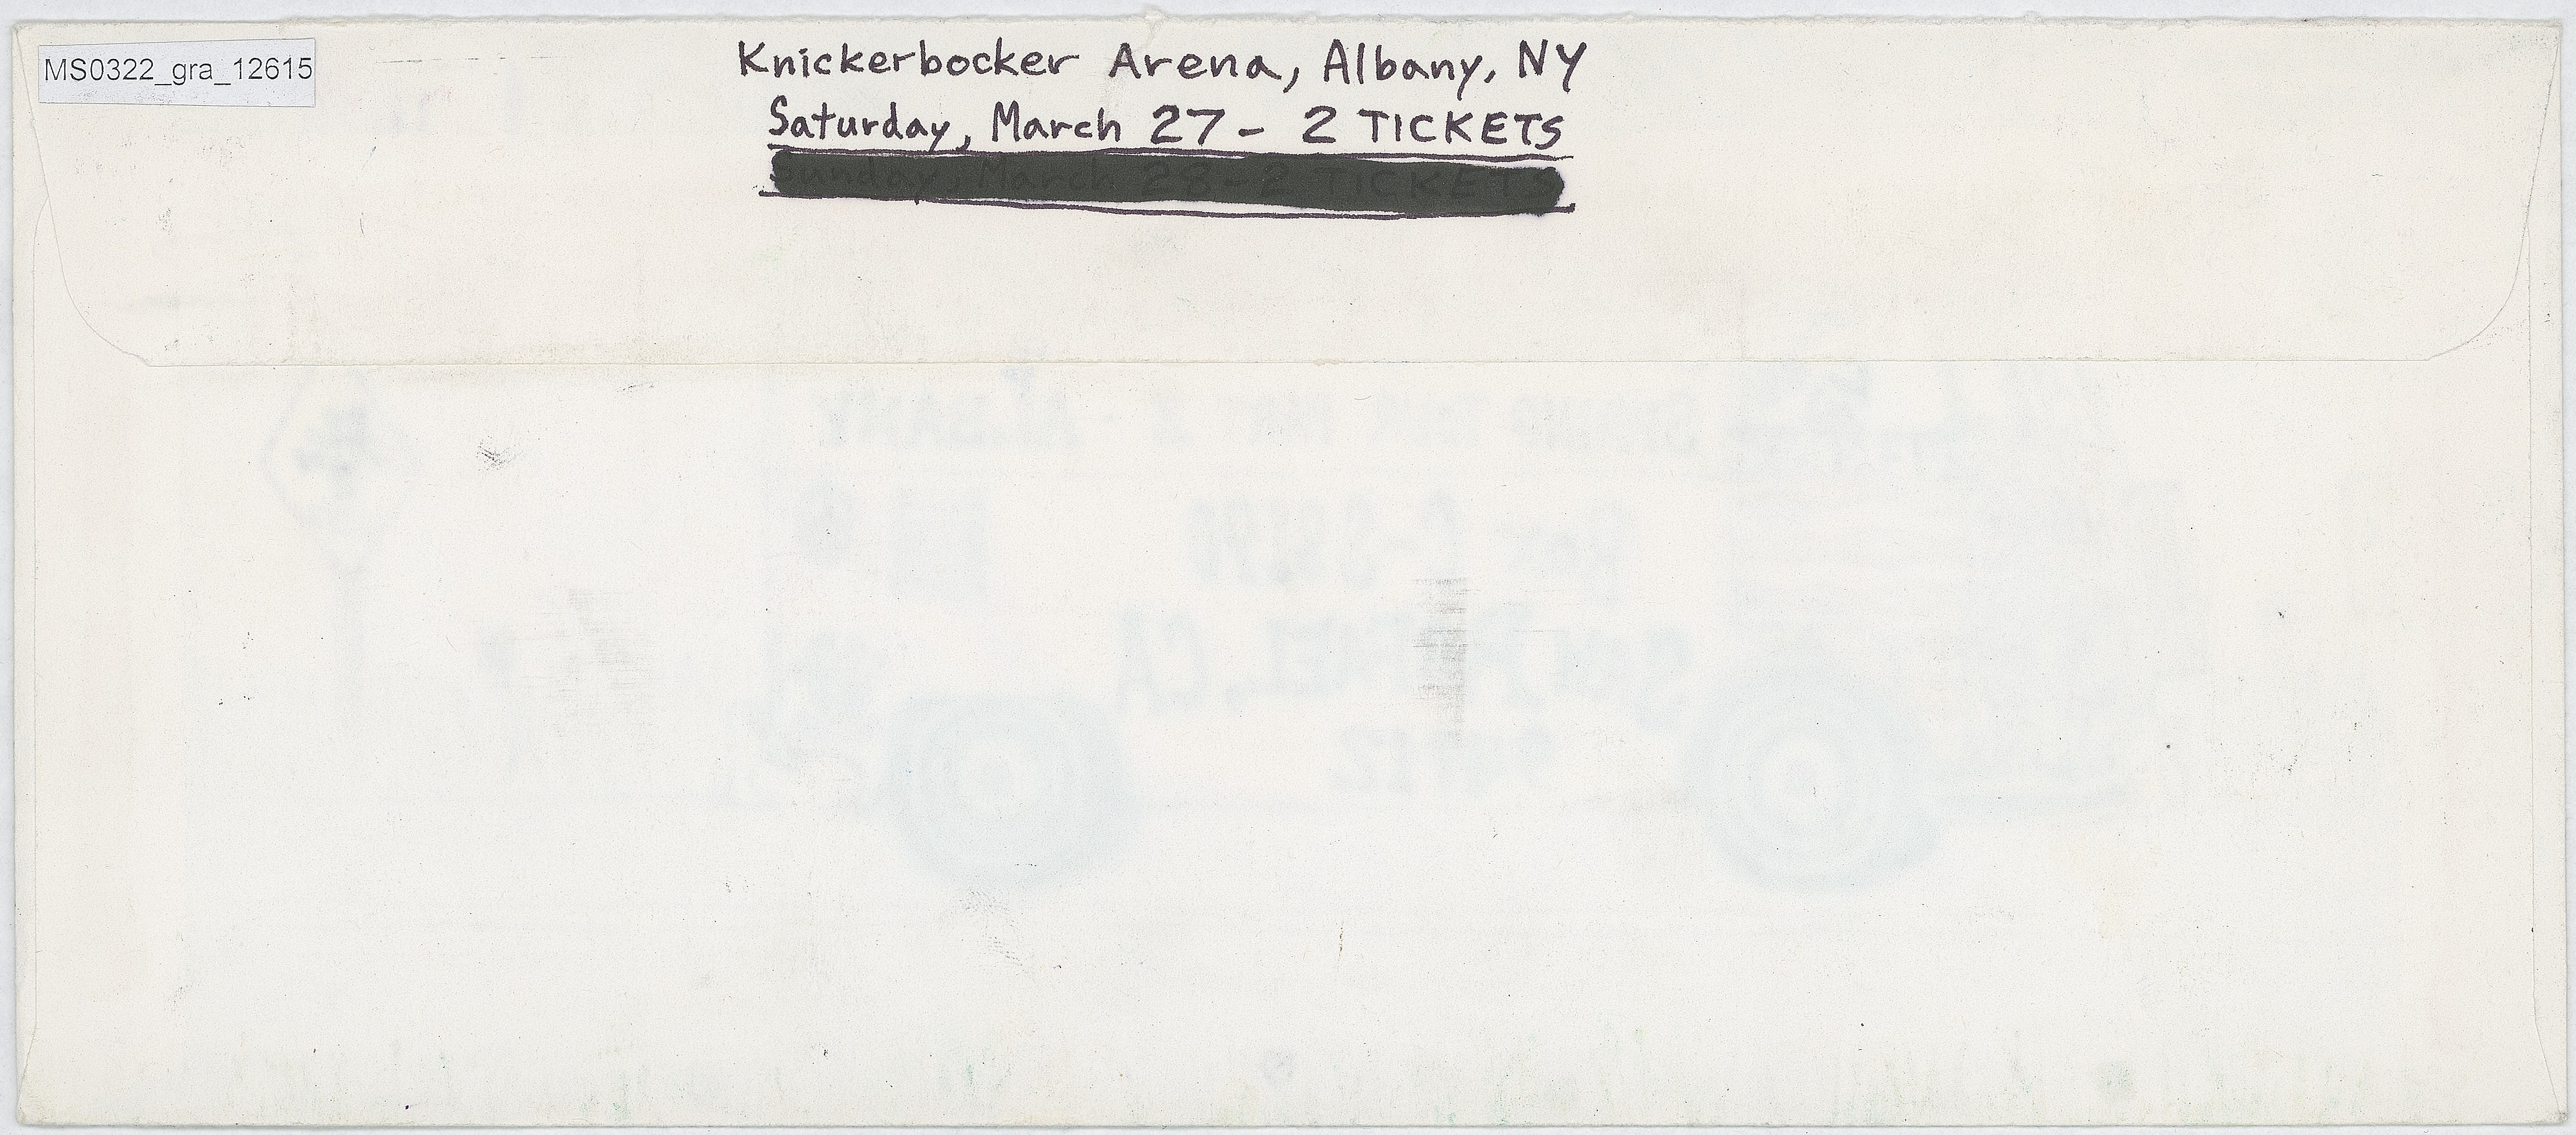 MS0322_gra_12615
Knickerbocker Arena, Albany, NY
Saturday, March 27 - 2 TICKETS
Sunday, March 28 - 2 TICKETS